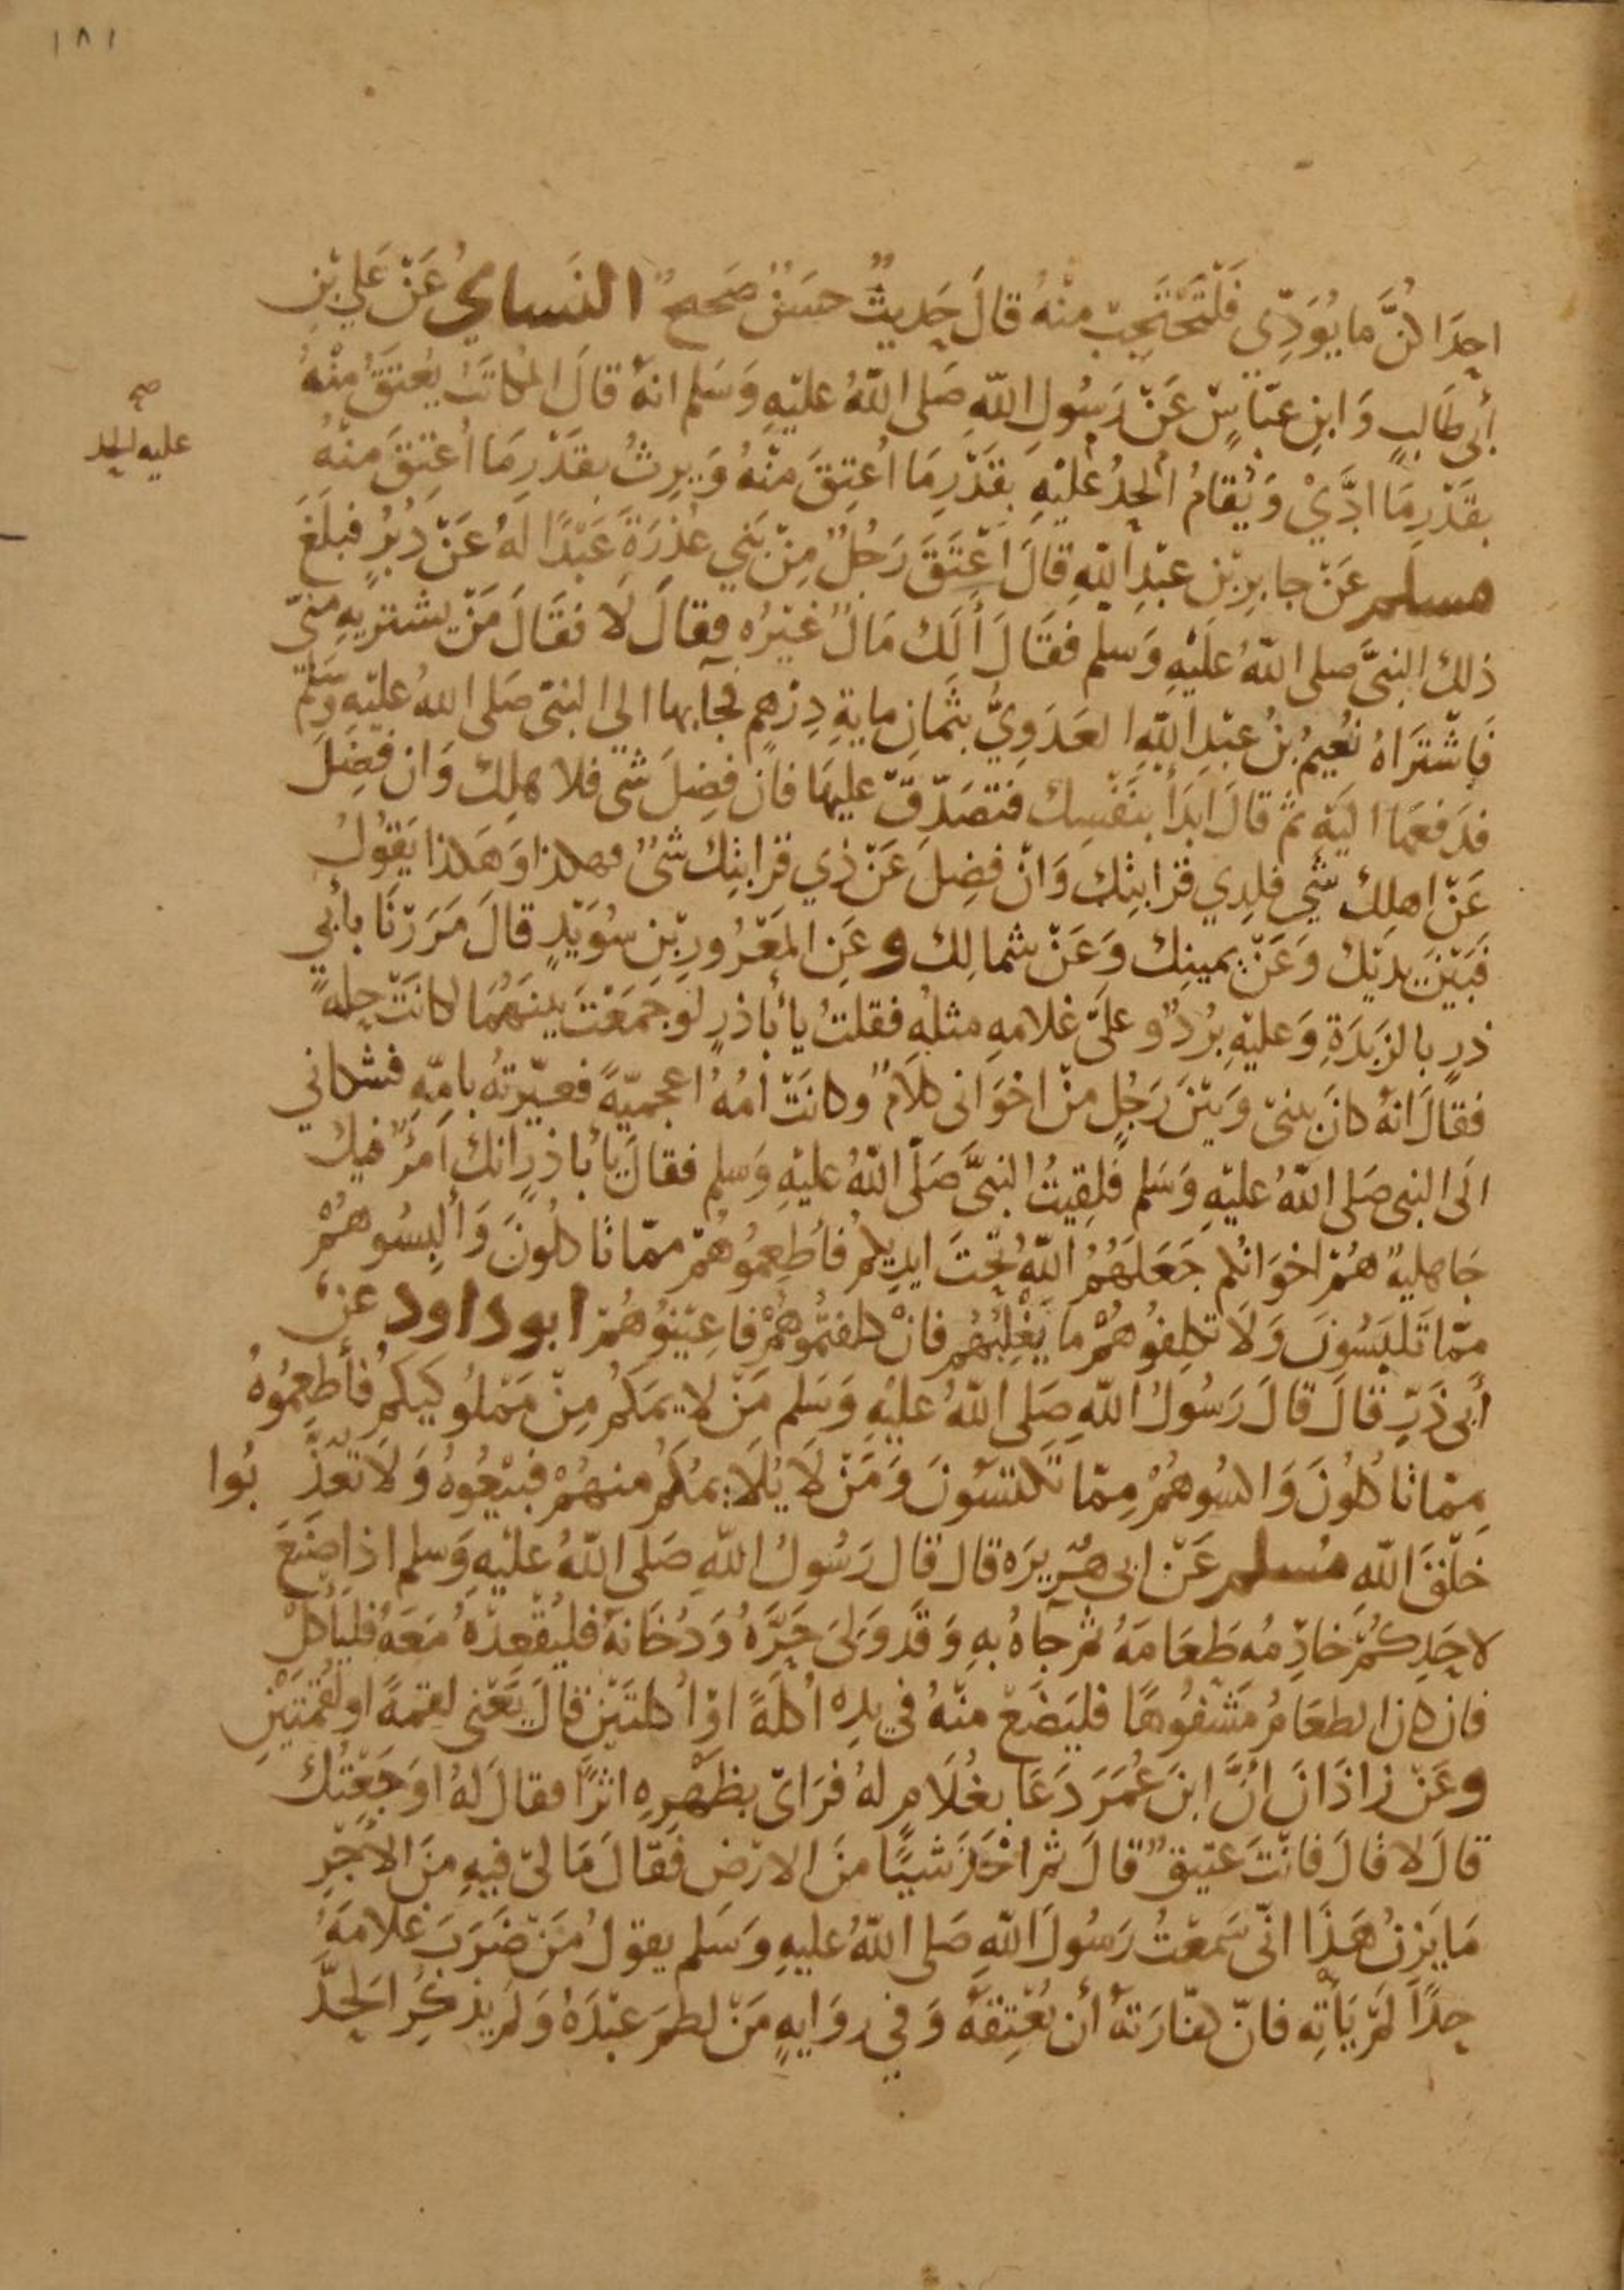 ١٨١
احِدَاكُنَّ مَا يُوَدِّي فَلْتَحْتَجِبْ مِنْهُ قَالَ حَدِيثٌ حسَنٌ صَحيحٌ النَساىُ عَنْ عَلي بْنِ
أبي طَالبٍ وَابنِ عبّاسٍ عَنْ رَسُولِ اللّهِ صَلى اللّهُ عليْهِ وَسَلم انهُ قَالَ المُكاتَبُ يُعتَقُ مِنْهُ
بقَدْرِ مَا ادَّيْ وَيُقامُ الحدُ عليْهِ بقَدْرِ مَا اُعتِقَ مِنْهُ وَيرِثُ بقَدْرِ مَا اُعْتِقَ مِنْهُ
صح
عليه الحد
مسلم عَنْ جابِرِ بْنِ عبْدِ اللّهِ قالَ اَعْتَقَ رَجُلٌ مِنْ بَنِي عُذرَةَ عَبْدًا لَهُ عَنْ دُبُرٍ فبلَغَ
ذلكَ النبيَّ صلى اللّهُ عليْهِ وَسلم فقَالَ أَلَكَ مَالٌ غيْرُهُ فقالَ لَا فقَالَ مَنْ يشتريهِ منّي
فَاشْتَرَاهُ نُعَيمُ بنُ عبْدِ اللّهِ العَدَوِيُّ بثمانِ مايةِ دِرْهمٍ فجآبها الى النبيّ صَلى اللهُ عليْهِ وَسَلم
فدَفعَها اليْهِ ثم قالَ ابدَأ بنَفْسِكَ فتصَدّقْ عليهَا فان فضِلَ شي فلاهلِكَ وَان فضَلَ
عَنْ اهلِكَ شي فلِذي قَرابتِكَ وَانْ فضِلَ عَنْ ذِي قرابتِكَ شىٌ فهكذا وَهَكذا يَقُولُ
فَبَيْنَ يدَيْكَ وَعَنْ يمينِكَ وَعَنْ شمالِكَ وعَنِ المَعْرُورِ بْنِ سُوَيْدٍ قالَ مَرَرْنَا بأبي
ذرٍ بالرَبَذَةِ وَعليْهِ بُردٌ وعلَى غلامهِ مثلهُ فقلتُ يا أبَا ذرٍ لو جَمَعْتَ بينَهُمَا كانَتْ حلةً
فقالَ انهُ كانَ بيني وَبَيْنَ رَجُلٍ منْ اخْوَاني كلاَمٌ وكانَتْ اُمُهُ اعجميّةً فعيّرتهُ بامّهِ فشكاني
الَى النبي صَلى اللّهُ عليْهِ وَسَلم فَلقِيتُ النبيَّ صَلّى اللّهُ عليْهِ وَسَلم فقالَ يا أبا ذرٍ انكَ اَمْرٌ فيكَ
جَاهليةٌ همْ اخوَانُكم جَعَلَهُمُ اللّهُ تحْتَ ايديكُمْ فأطعِمُوهُمْ ممّا تاكلُونَ وَألبِسُوهُمْ
ممّا تَلبَسُونَ وَلاَ تكلِفُوهُمْ ما يَغْلِبُهُم فانْ كلفتُموهُمْ فاعِيْنُوهُمْ ابوداود عنْ
أبي ذَرٍّ قالَ قالَ رَسُولُ اللّهِ صَلى اللّهُ عليْهِ وَسَلم مَنْ لايمَكُمْ مِنْ مَمْلُوكيكُمْ فأطعِمُوهُ
مِمّا تاكلُونَ وَاكسُوهُمْ مِمّا تَكتسُونَ وَمَنْ لَا يُلَايمُكُم منهُمْ فبيْعُوهُ وَلَا تُعَذّ بُوا
خلْقَ اللّهِ مُسلم عَنْ ابي هُرَيرَه قال قال رَسُولُ اللّهِ صَلى اللّهُ عليْهِ وَسلم اذا صَنَعَ
لاحَدِكُمْ خادِمُه طَعَامَهُ ثم جآهُ بهِ وَقَد وَلىَ حَرَّهُ وَدُخَانهُ فليُقْعِدْهُ مَعَهُ فليَأكلْ
فان كان الطعَامُ مَشْفُوهًا فليَضَعْ منْهُ في يدِهْ اُكلَةً اوْ اُكلتَيْنِ قالَ يَعْني لقمةً او لقمَتَيْنِ
وعَنْ زاذَانَ انَّ ابنَ عُمَرَ دَعَا بغُلَامٍ لهُ فرَاىْ بظَهْرِهِ اثرًا فقالَ لهُ اوجَعْتُكَ
قالَ لا قالَ فانْتَ عتيقٌ قالَ ثم اخَذَ شيئًا منَ الارْضِ فَقالَ مَا ليْ فيهِ منَ الاَجْرِ
مَا يَزِنُ هَذَا انّي سَمعْتُ رَسُولَ اللّهِ صَلى اللّهُ عليهِ وَسَلم يقولُ مَنْ ضَرَبَ غلامَهُ
حدًا لمْ يَأتِه فانّ كفّارَتهُ أن يُعْتِقهُ وَفي روَايهٍ مَنْ لطمَ عبْدَهُ وَلمْ يذكُرِ الحَدَّ